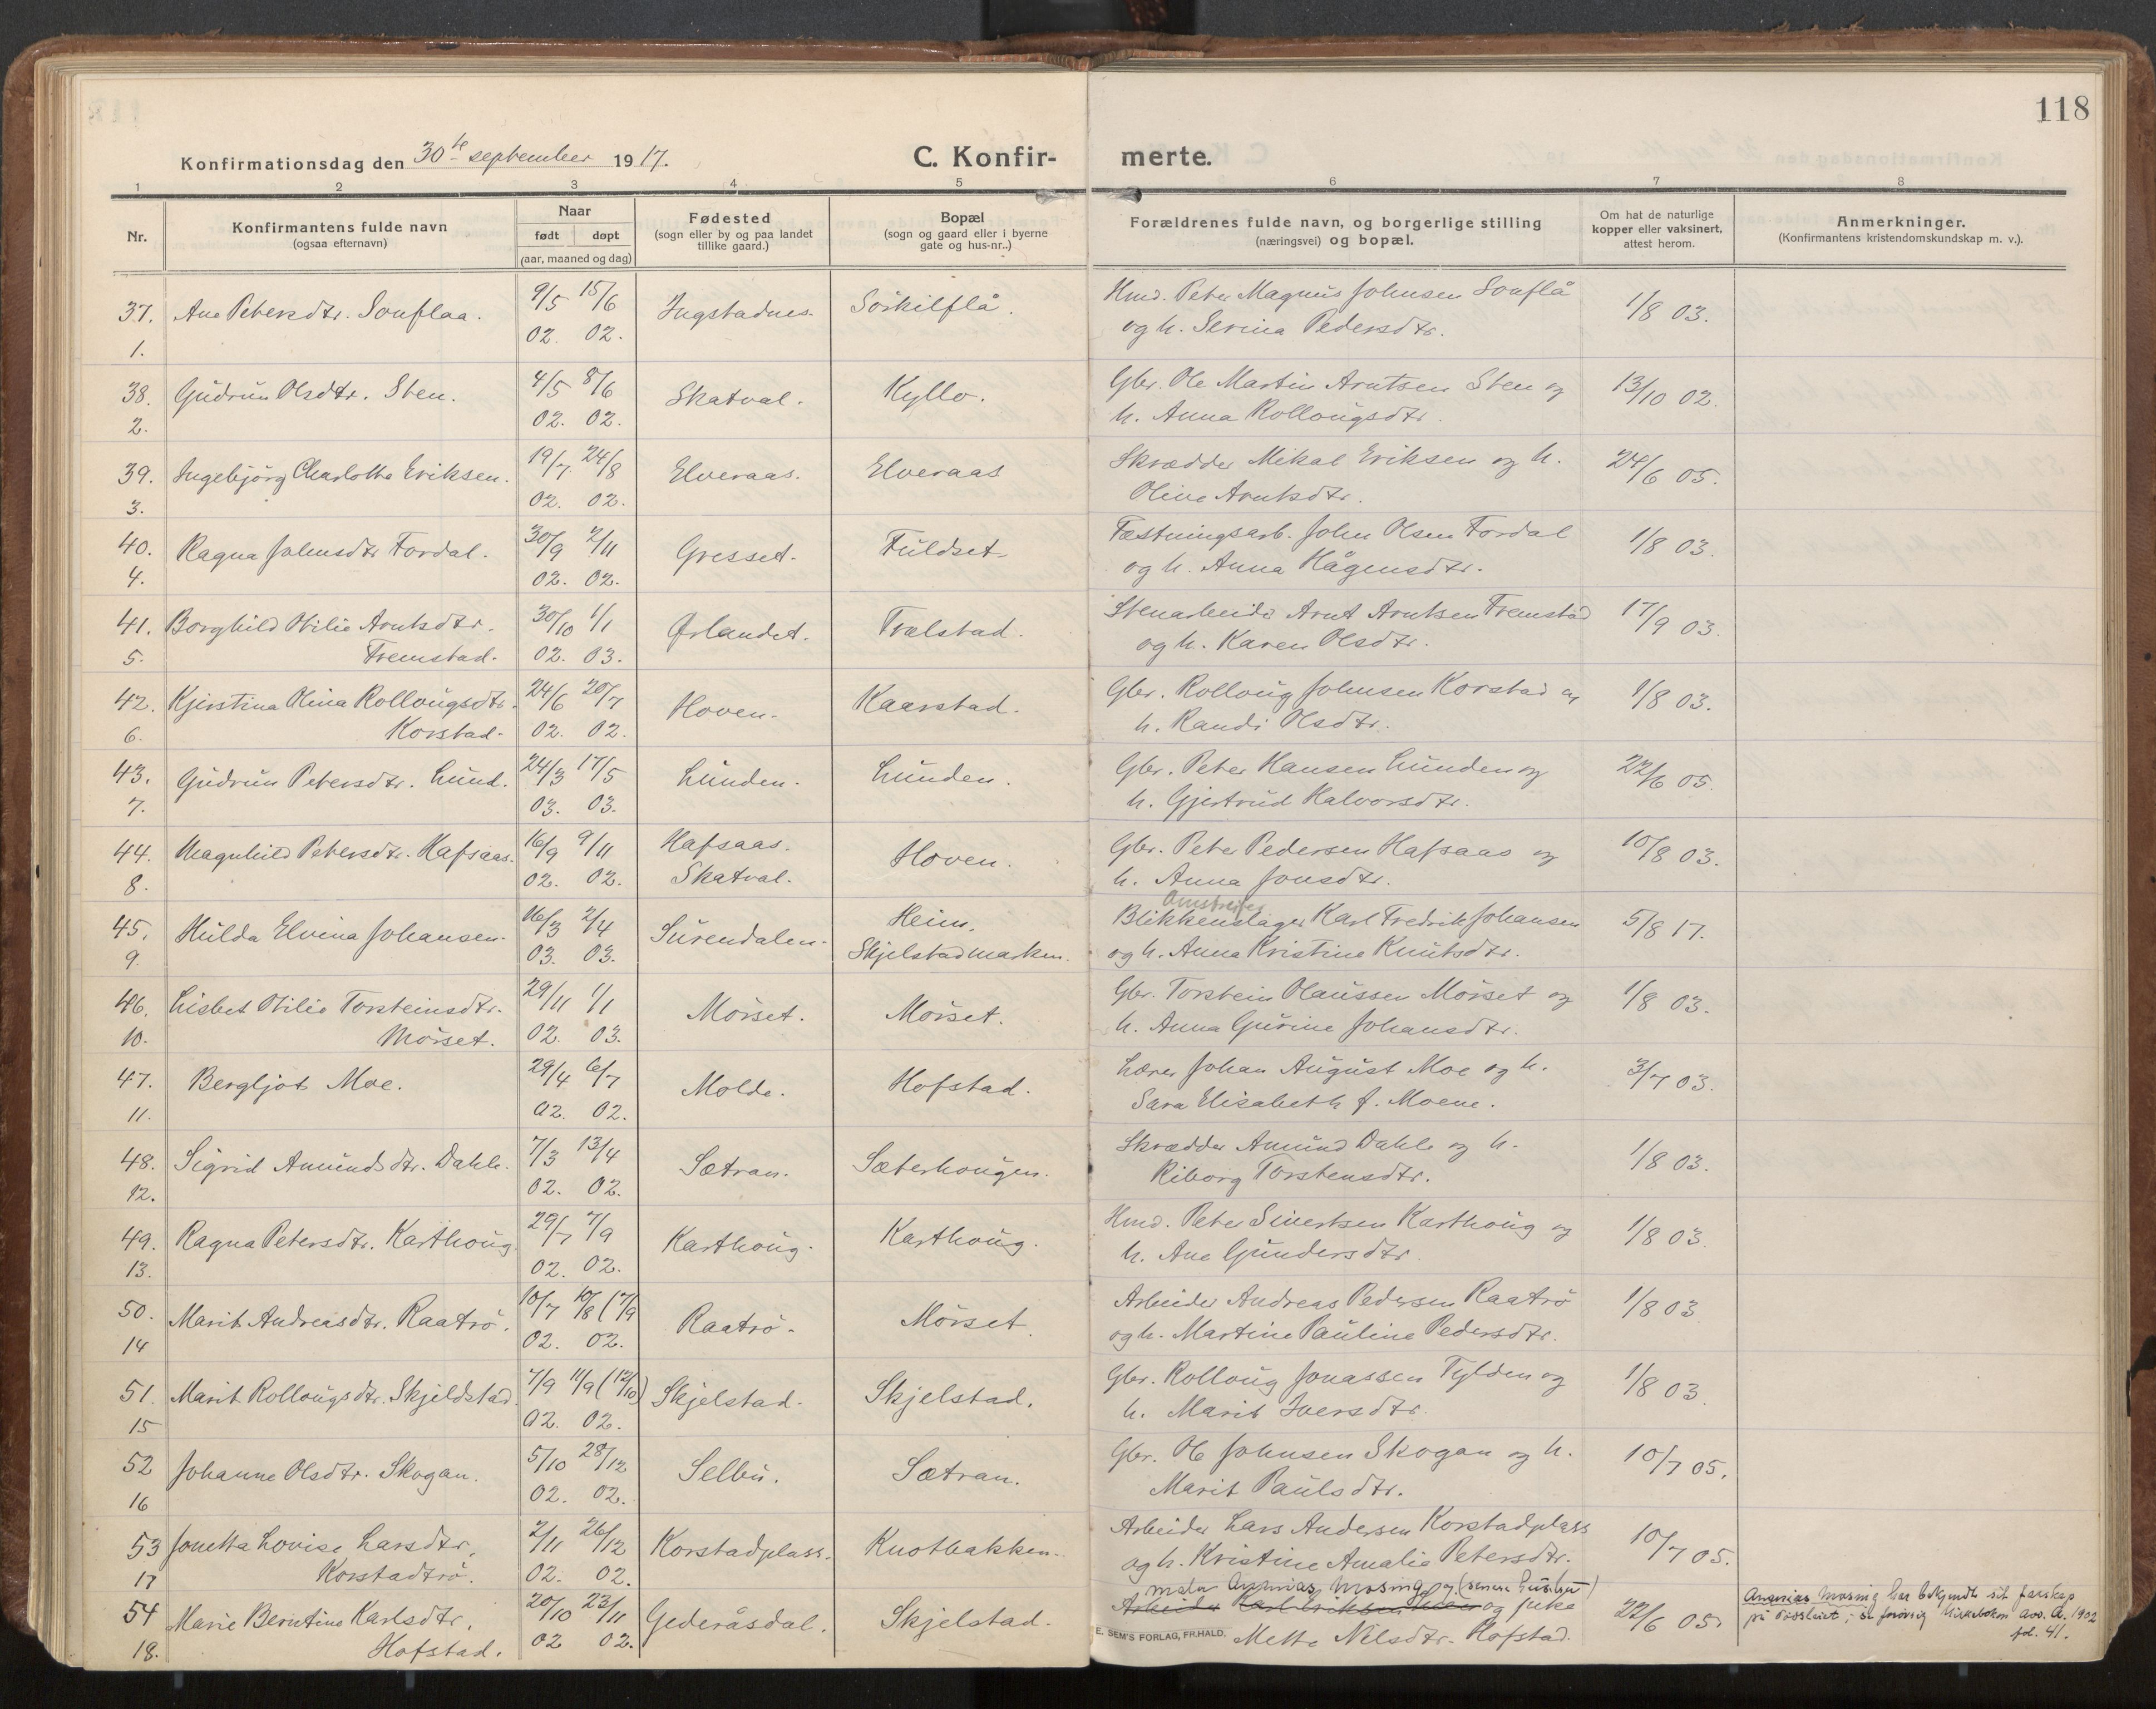 118
Konfirmationsdag den 30te september 1917.
C. Konfirmerte.
1 2 3 4 5 6 7 8
Nr.
Konfirmantens fulde navn
(ogsaa efternavn)
Naar
født døpt
(aar, maaned og dag)
Fødested
(sogn eller by og paa landet
tillike gaard.)
Bopæl
(sogn og gaard eller i byerne
gate og hus-nr..)
Forældrenes fulde navn, og borgerlige stilling
(næringsvei) og bopæl.
Om hat de naturlige
kopper eller vaksinert,
attest herom.
Anmerkninger.
(Konfirmantens kristendomskundskap m. v.).
37. Ane Petersdtr. Sonflaa. 9/5 15/6 Ingstadnes. Sörkilflå. Hmd. Peter Magnus Johnsen Sonflå 1/8 03.
1. 02. 02. og h. Serina Pedersdtr.
38. Gudrun Olsdtr. Sten. 4/5 8/6 Skatval. Kyllo. Gbr. Ole Martin Arntsen Sten og 13/10 02.
2. 02. 02. h. Anna Rollougsdtr.
39. Ingebjörg Charlotte Eriksen. 19/7 24/8 Elveraas. Elveraas Skrædder Mikal Eriksen og h. 24/6 05.
3. 02. 02. Oline Arntsdtr.
40. Ragna Johnsdtr Fordal. 30/9 2/11 Gresset. Fuldset. Fæstningsarb. John Olsen Fordal 1/8 03.
4. 02. 02. og h. Anna Hågensdtr.
41. Borghild Otilie Arntsdtr. 30/10 1/1 Ørlandet. Trælstad. Stenarbeider Arnt Arntsen Fremstad 17/9 03.
5. Fremstad. 02. 03. og h. Karen Olsdtr.
42. Kjerstina Olina Rollougsdtr. 24/6 20/7 Hoven. Kaarstad. Gbr. Rolloug Johnsen Korstad og 1/8 03.
6. Korstad. 02. 02. h. Randi Olsdtr.
43. Gudrun Petersdtr. Lund. 24/3 17/5 Lunden. Lunden. Gbr. Peter Hansen Lunden og 22/6 05.
7. 03. 03. h. Gjertrud Halvorsdtr.
44. Magnhild Petersdtr. Hafsaas. 16/9 9/11 Hafsaas. Hoven. Gbr. Peter Pedersen Hafsaas og 10/8 03.
8. 02. 02. Skatval. h. Anna Jonsdtr.
45. Hulda Elvina Johansen. 16/3 2/4 Surendalen. Heim, Blikkenslager Karl Fredrik Johansen 5/8 17.
9. 03. 03. Skjelstadmarken. og h. Anna Kristine Knutsdtr.
46. Lisbet Otilie Torsteinsdtr. 29/11 1/1 Mörset. Mörset. Gbr. Torstein Olaussen Mörset og 1/8 03.
10. Mörset. 02. 03. h. Anna Gurine Johansdtr.
47. Bergljot Moe. 29/4 6/7 Molde. Hofstad. Lærer Johan August Moe og h. 3/7 03.
11. 02. 02. Sara Elisabeth f. Moene.
48. Sigrid Amundsdtr. Dahle. 7/3 13/4 Sætran. Sæterhougen. Skrædder Amund Dahle og h. 1/8 03.
12. 02. 02. Riborg Torstensdtr.
49. Ragna Petersdtr. Karthoug. 29/7 7/9 Karthoug. Karthoug. Hmd. Peter Sivertsen Karthoug og 1/8 03.
13. 02. 02. h. Ane Gundersdtr.
50. Marit Andreasdtr. Raatrö. 10/7 10/8 (7/9 Raatrö. Mörset. Arbeider Andreas Pedersen Raatrö 1/8 03.
14 02. 02. og h. Martine Pauline Pedersdtr.
51. Marit Rollougsdtr. Skjeldstad. 7/9 11/9 (12/10) Skjelstad. Skjelstad. Gbr. Rolloug Jonassen Tylden og 1/8 03.
15 02. 02. h. Marit Iversdtr.
52 Johanne Olsdtr. Skogan. 5/10 28/12 Selbu. Sætran. Gbr. Ole Johnsen Skogan og h. 10/7 05.
16 02. 02. Marit Paulsdtr.
53 Jonetta Lovise Larsdtr. 2/11 26/12 Korstadplass. Knotbakken. Arbeider Lars Andersen Korstadplass 10/7 05.
17 Korstadtrö. 02. 02. og h. Kristine Amalie Petersdtr.
maler Ananias Mosing og (senere hustru)
54 Marie Berntine Karlsdtr. 20/10 23/11 Gederåsdal. Skjelstad. Arbeider Karl Eriksen og pike 22/6 05. Ananias Mosing har bekjendt sit farskap
18. Hofstad. 02 02. Mette Nilsdtr. Hofstad. kirkebokens avs. A. 1902
fol. 41.
E. SEM'S FORLAG, FR.HALD.